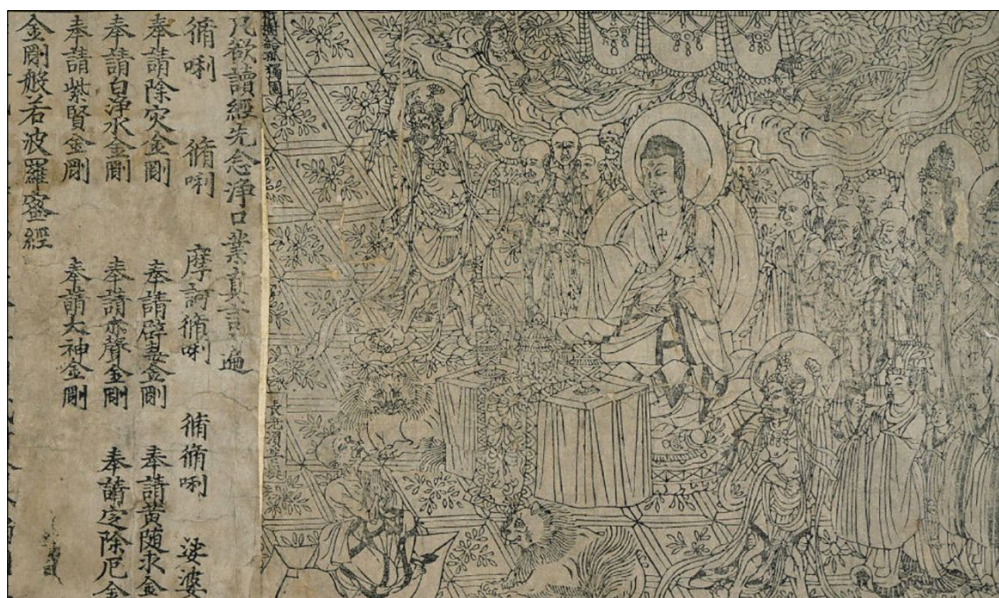 祇樹給孤獨園
長老須菩提
凡欲讀經先念淨口業真言遍
脩唎 脩唎 摩訶脩唎 脩脩唎 娑婆
奉請除灾金剛 奉請辟毒金剛 奉請黃随求金
奉請白淨水金剛 奉請赤聲金剛 奉請定除厄金
奉請紫賢金剛 奉請大神金剛
金剛般若波羅蜜經